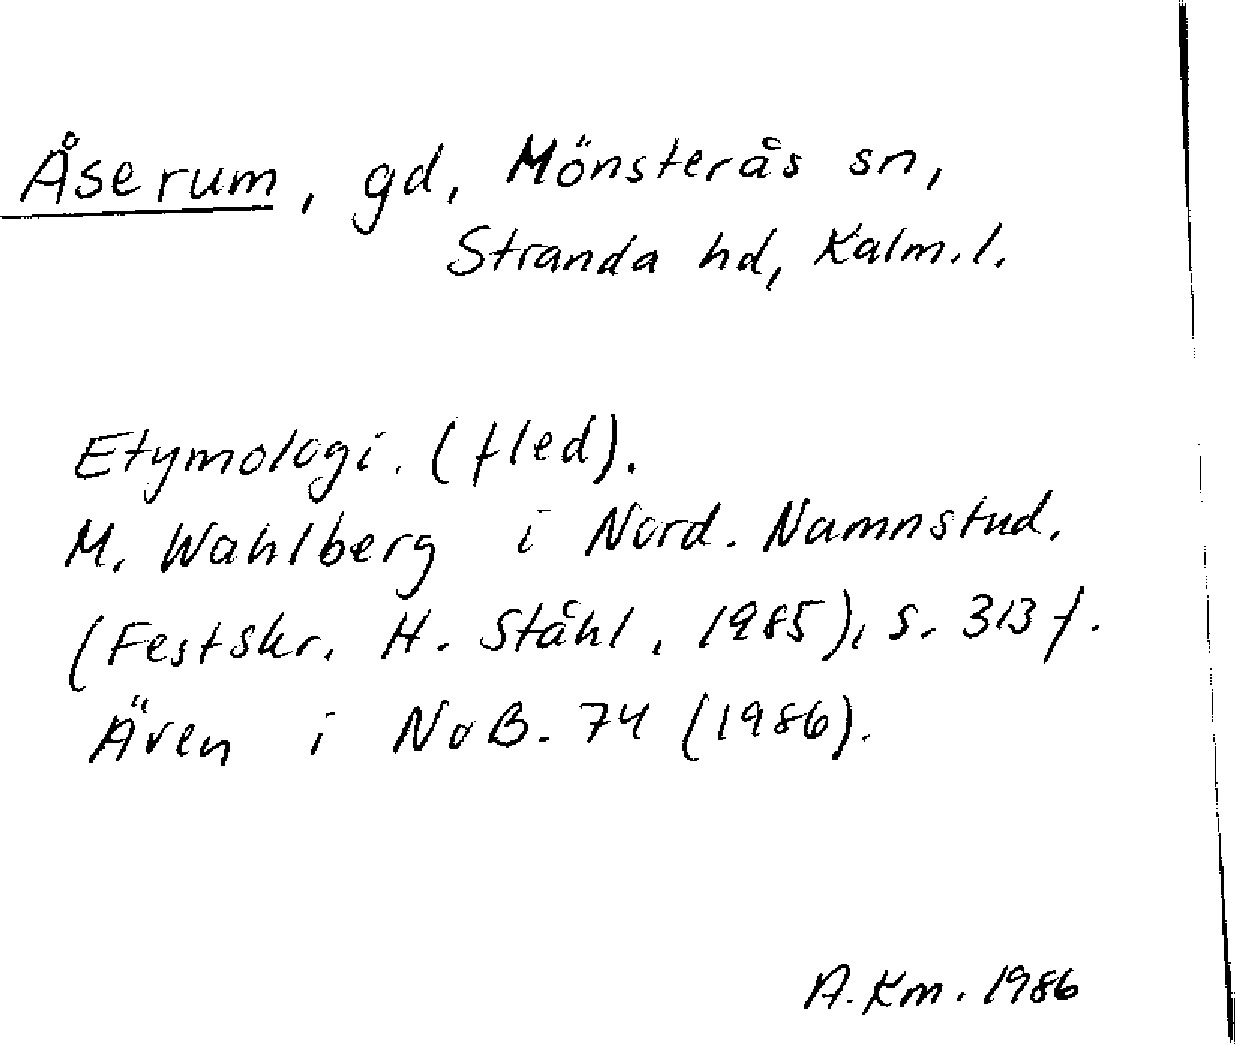 Åserum, gd, Mönsterås sn,
Stranda hd, Kalm.l.
Etymologi. (fled).
M. Wahlberg i Nord. Namnstud.
(Festskr. H. Ståhl, 1985), s. 313 f.
Även i NoB. 74 (1986).
A. Km. 1986